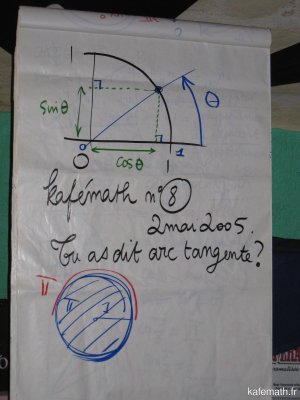 1
θ
sin θ
0
1
O
cos θ
1
Kafémath n° 8
2 mai 2005.
Tu as dit arc tangente?
π
π
kafemath.fr